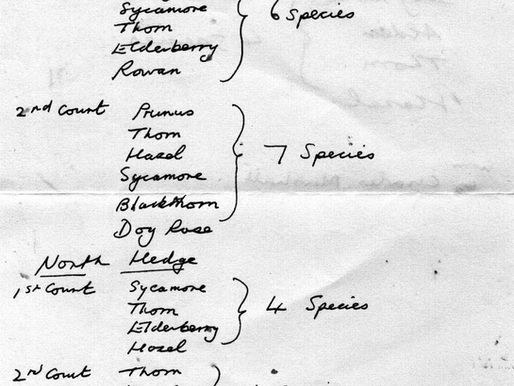 Sycamore
Thorn
Elderberry
Rowan
6 Species
2nd Count Prunus
Thorn
Hazel
Sycamore
Blackthorn
Dog Rose
7 Species
North Hedge
1st Count Sycamore
Thorn
Elderberry
Hazel
4 Species
2nd Count Thorn